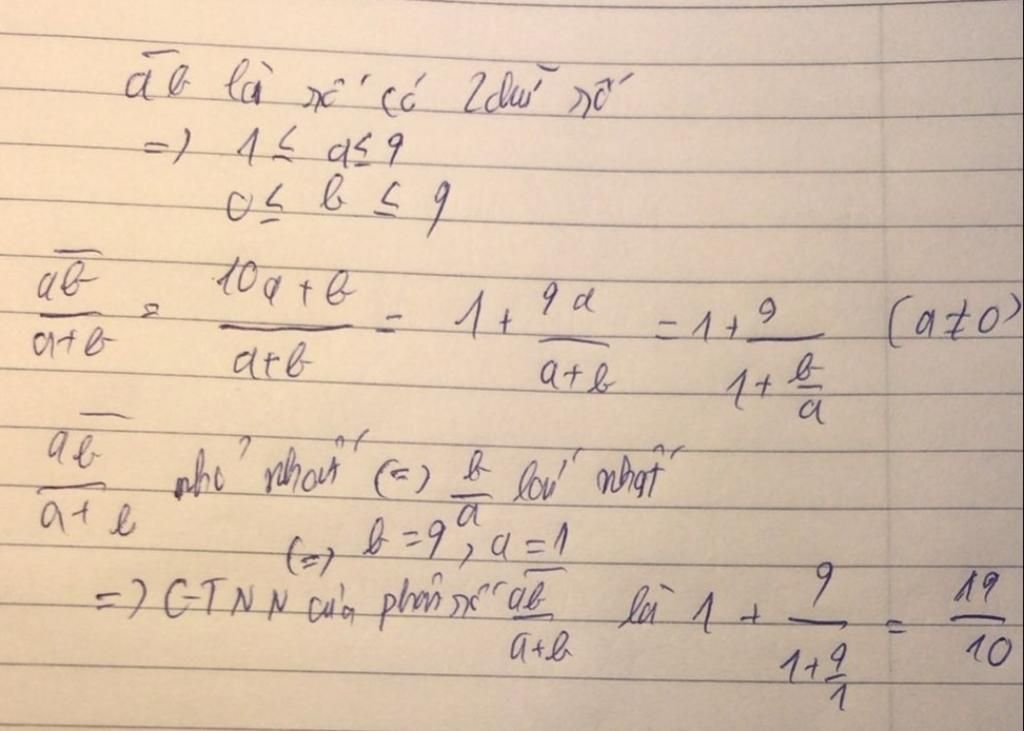 $\overline{ab}$ là số có 2 chữ số
=) 1 ≤ a ≤ 9
0 ≤ b ≤ 9
$\frac{\overline{ab}}{a+b} = \frac{10a+b}{a+b} = 1 + \frac{9a}{a+b} = 1 + \frac{9}{1+\frac{b}{a}}$ (a ≠ 0)
$\frac{\overline{ab}}{a+b}$ nhỏ nhất (=) $\frac{b}{a}$ lớn nhất
(=) b = 9, a = 1
=) GTNN của phân số $\frac{\overline{ab}}{a+b}$ là $1 + \frac{9}{1+\frac{9}{1}} = \frac{19}{10}$